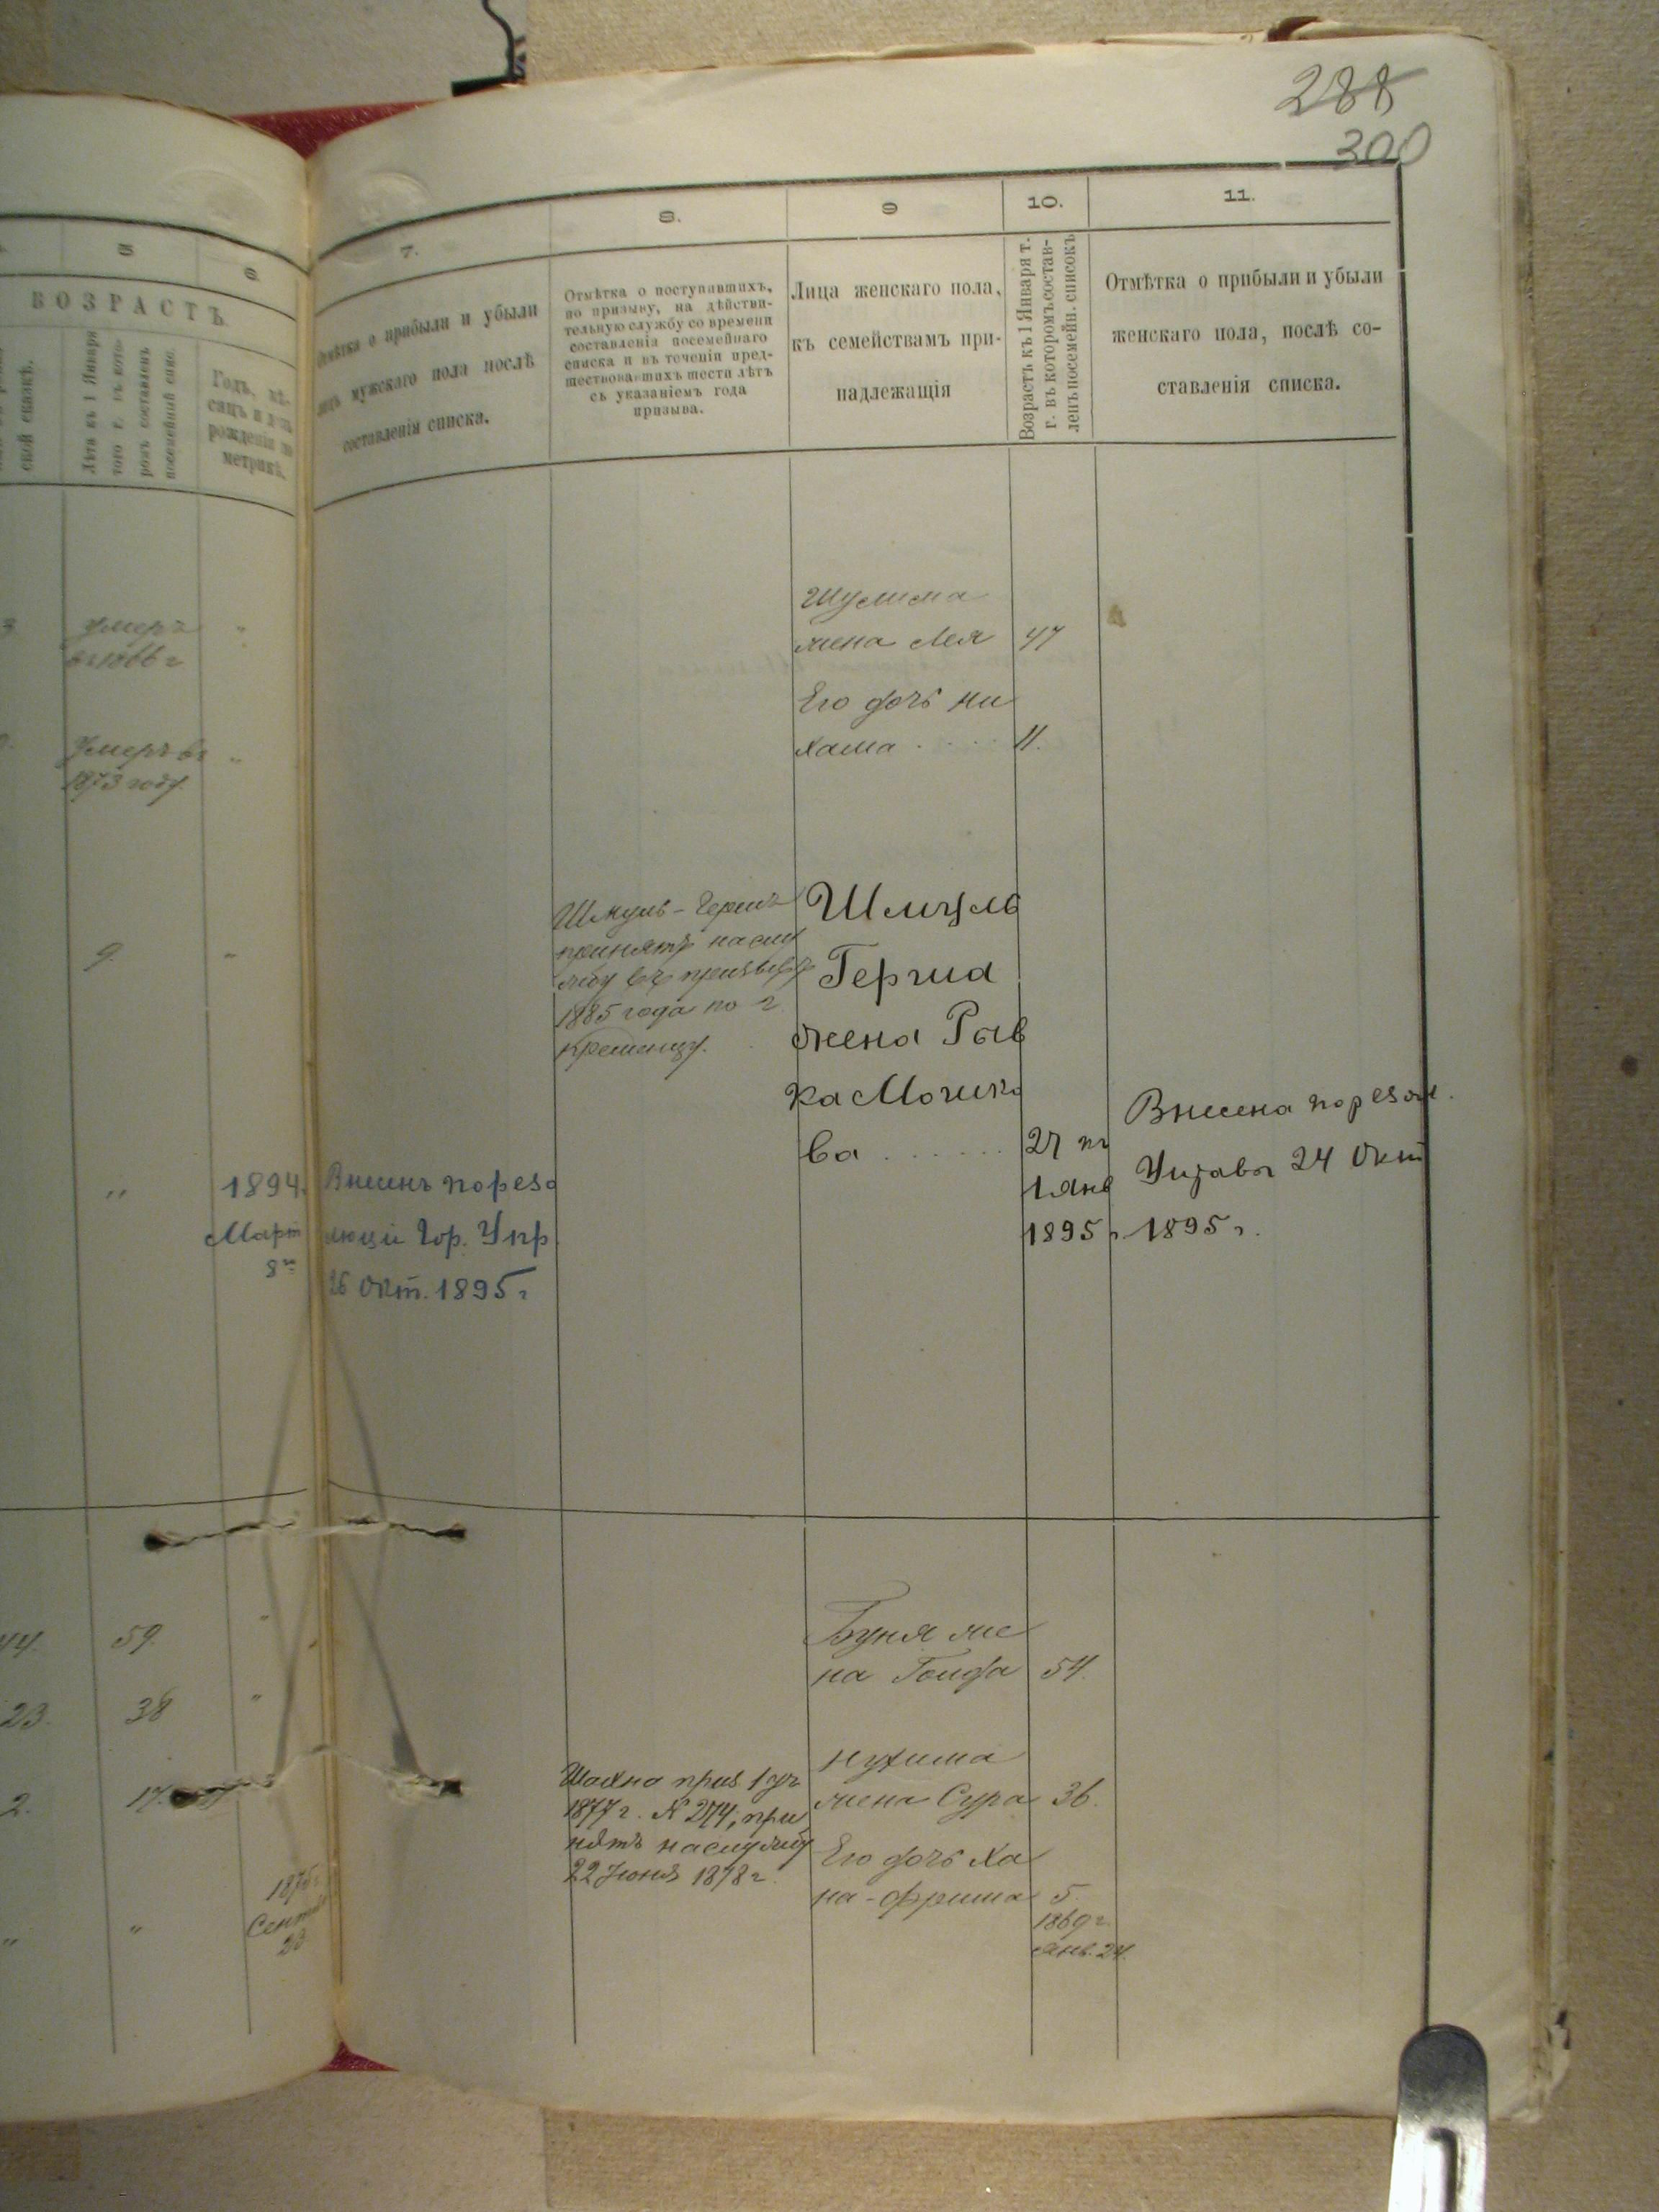 288
300
5
6.
7.
8.
9
10.
11.
ВОЗРАСТЪ
ской сказкѣ.
Лѣта къ 1 Января
того г. въ кото-
ромъ составленъ
посемейный спис.
Годъ, мѣ-
сяцъ и день
рожденія по
метрикѣ.
Отмѣтка о прибыли и убыли
лицъ мужскаго пола послѣ
составленія списка.
Отмѣтка о поступившихъ,
по призыву, на дѣйстви-
тельную службу со времени
составленія посемейнаго
списка и въ теченіи пред-
шествовавшихъ шести лѣтъ
съ указаніемъ года
призыва.
Лица женскаго пола,
къ семействамъ при-
надлежащія
Возрастъ къ 1 Января т.
г. въ которомъ состав-
ленъ посемейн. списокъ
Отмѣтка о прибыли и убыли
женскаго пола, послѣ со-
ставленія списка.
умеръ
въ 1866 г
Шулима
жена Лея 47
Его дочь Ни
хама . . . . 11.
Умеръ въ
1873 году.
9.
Шмуль-Гершъ
принятъ на слу
жбу въ призывѣ
1885 года по г.
Кременцу.
Шмуль
Герша
жена Рыв
ка Мошко
ва . . . . . . 27 къ
1 Янв
1895 г.
Внесена по резол.
Управы 24 Окт
1895 г.
1894.
Март
8го
Внесенъ по резо
люціи Гор. Упр.
26 Окт. 1895 г
44. 59.
23. 38
2. 17.
1875 г.
Сент
23
Буня же
на Гоифа 54.
Шахна приз 1 уч
1877 г. № 274, при
нятъ на службу
22 Іюня 1878 г.
Нухима
жена Сура 36.
Его дочь Ха
на-Фрима 5.
1869 г.
Янв. 24.